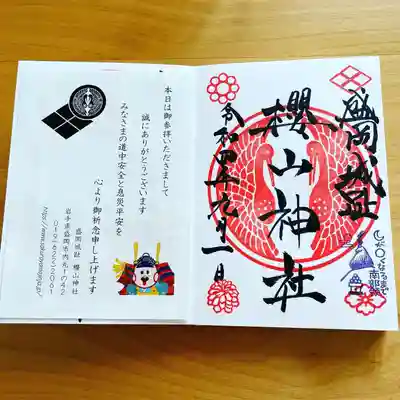 盛岡城趾
櫻山神社
令和四年九月一日
くなるまで
南部
本日は御参拝いただきまして
誠にありがとうございます
みなさまの道中安全と息災平安を
心より御祈念申し上げます
盛岡城趾 櫻山神社
岩手県盛岡市内丸1の42
019(622)2061
https://www.sakurayamajinja.jp/